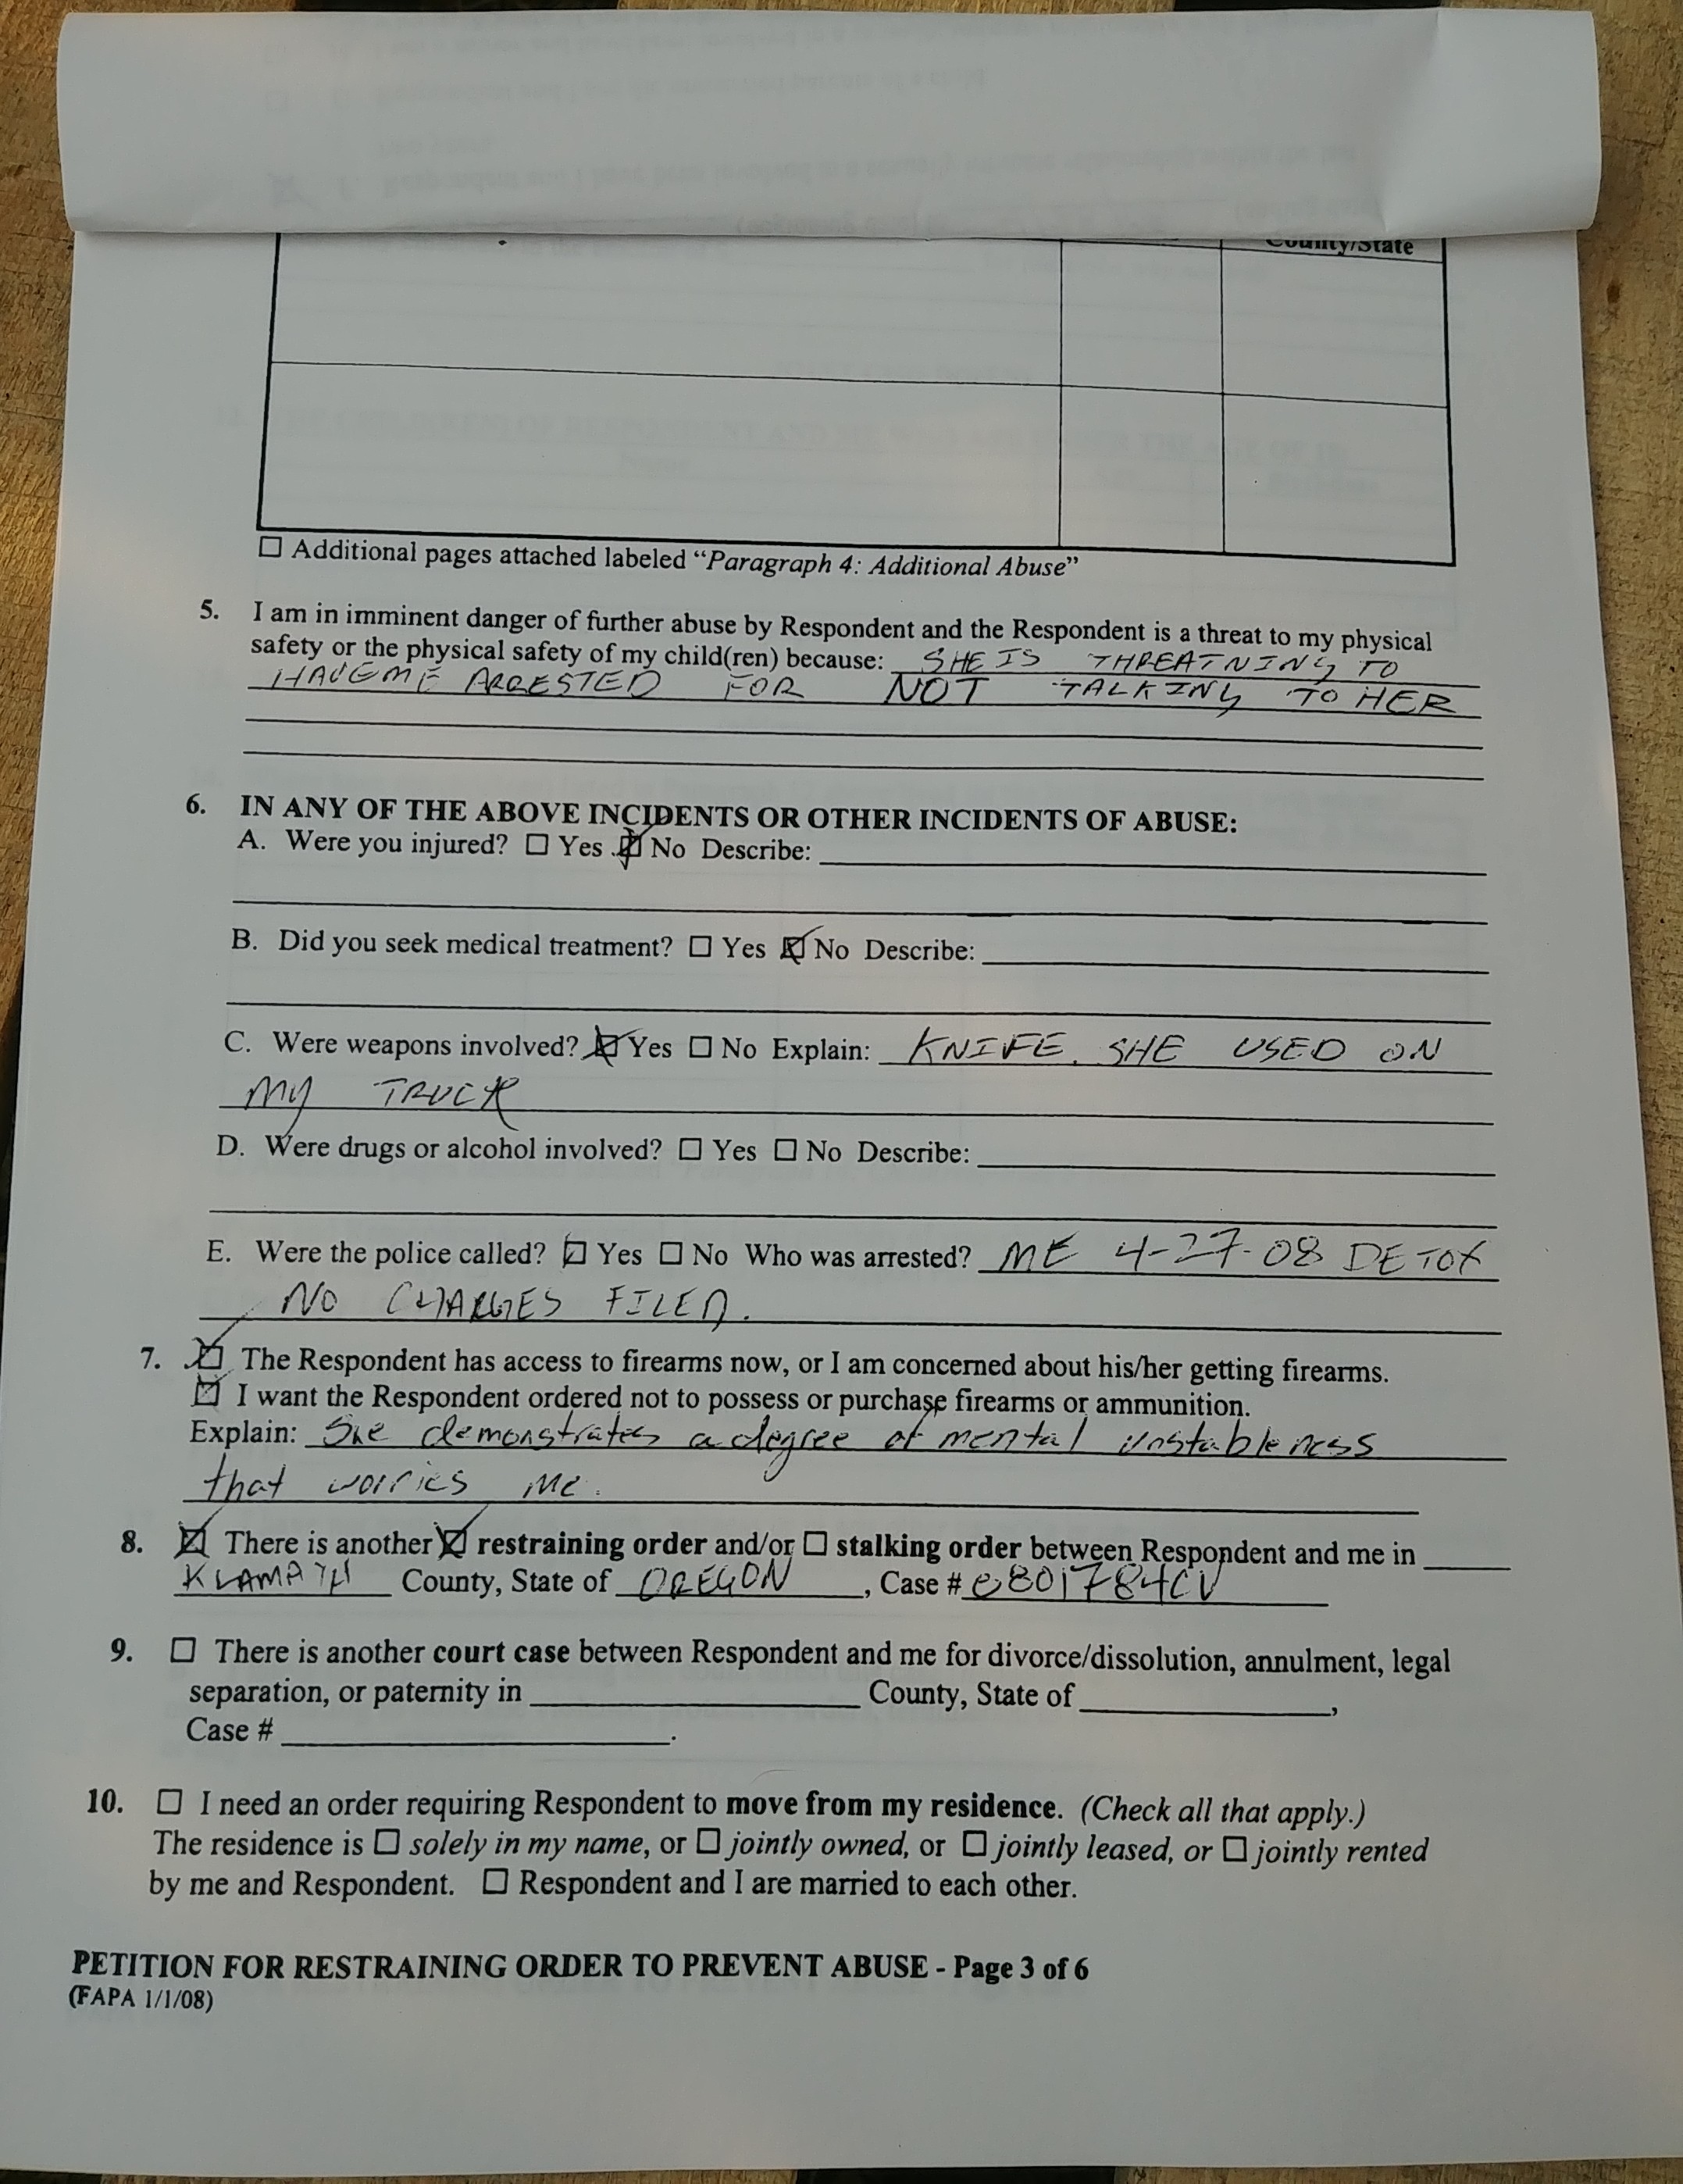 County/State
☐ Additional pages attached labeled “Paragraph 4: Additional Abuse”
5. I am in imminent danger of further abuse by Respondent and the Respondent is a threat to my physical
safety or the physical safety of my child(ren) because: SHE IS THREATNING TO
HAVE ME ARRESTED FOR NOT TALKING TO HER
6. IN ANY OF THE ABOVE INCIDENTS OR OTHER INCIDENTS OF ABUSE:
A. Were you injured? ☐ Yes ☒ No Describe:
B. Did you seek medical treatment? ☐ Yes ☒ No Describe:
C. Were weapons involved? ☒ Yes ☐ No Explain: KNIFE. SHE USED ON
MY TRUCK
D. Were drugs or alcohol involved? ☐ Yes ☐ No Describe:
E. Were the police called? ☒ Yes ☐ No Who was arrested? ME 4-27-08 DETOX
NO CHARGES FILED.
7. ☒ The Respondent has access to firearms now, or I am concerned about his/her getting firearms.
☒ I want the Respondent ordered not to possess or purchase firearms or ammunition.
Explain: She demonstrates a degree of mental unstableness
that worries me.
8. ☒ There is another ☒ restraining order and/or ☐ stalking order between Respondent and me in
KLAMATH County, State of OREGON, Case # 0801784CV
9. ☐ There is another court case between Respondent and me for divorce/dissolution, annulment, legal
separation, or paternity in ____ County, State of ____,
Case # ____.
10. ☐ I need an order requiring Respondent to move from my residence. (Check all that apply.)
The residence is ☐ solely in my name, or ☐ jointly owned, or ☐ jointly leased, or ☐ jointly rented
by me and Respondent. ☐ Respondent and I are married to each other.
PETITION FOR RESTRAINING ORDER TO PREVENT ABUSE - Page 3 of 6
(FAPA 1/1/08)